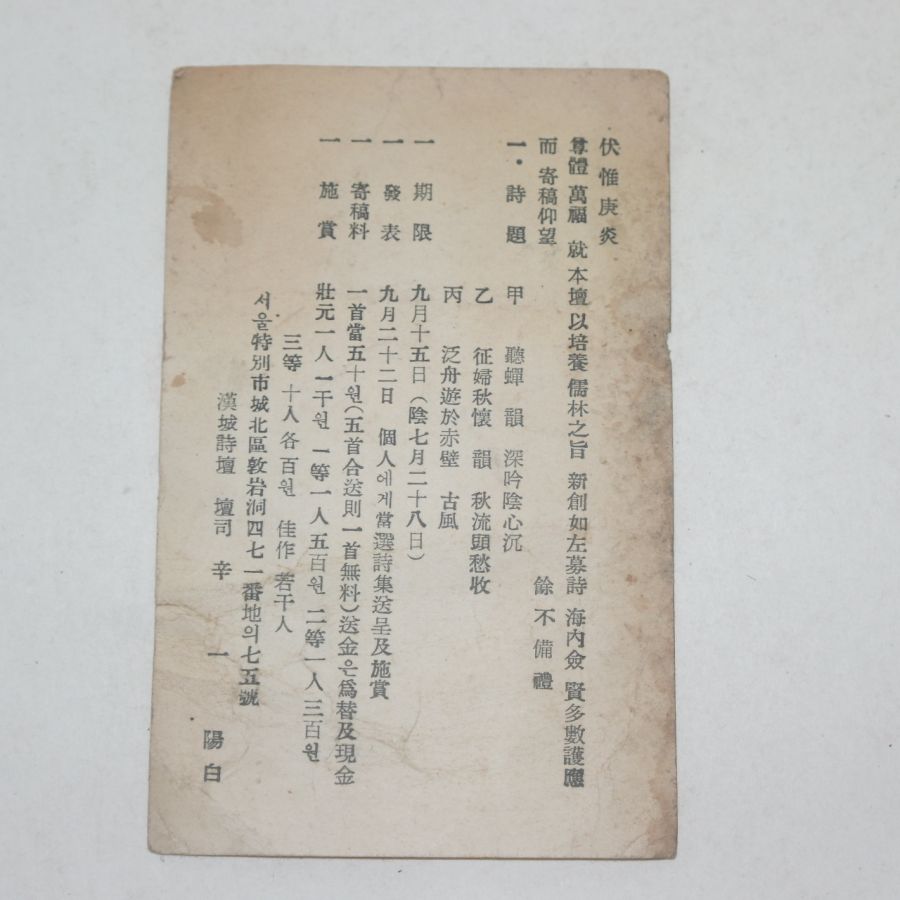 伏惟庚炎
尊體 萬福 就 本壇以培養 儒林之旨 新創如左募詩 海內僉 賢多數護應
而 寄稿仰望 餘不備禮
一・詩題 甲 聽蟬 韻 深吟陰心沉
乙 征婦秋懷 韻 秋流頭愁收
丙 泛舟遊於赤壁 古風
一 期限 九月十五日(陰七月二十八日)
一 發表 九月二十二日 個人에게當選詩集送呈及施賞
一 寄稿料 一首當五十원(五首合送則一首無料)送金은爲替及現金
一 施賞 壯元一人一千원 一等一人五百원 二等一人三百원
三等 十人各百원 佳作 若干人
서울特別市城北區敦岩洞四七一番地의七五號
漢城詩壇 壇司 辛一陽白